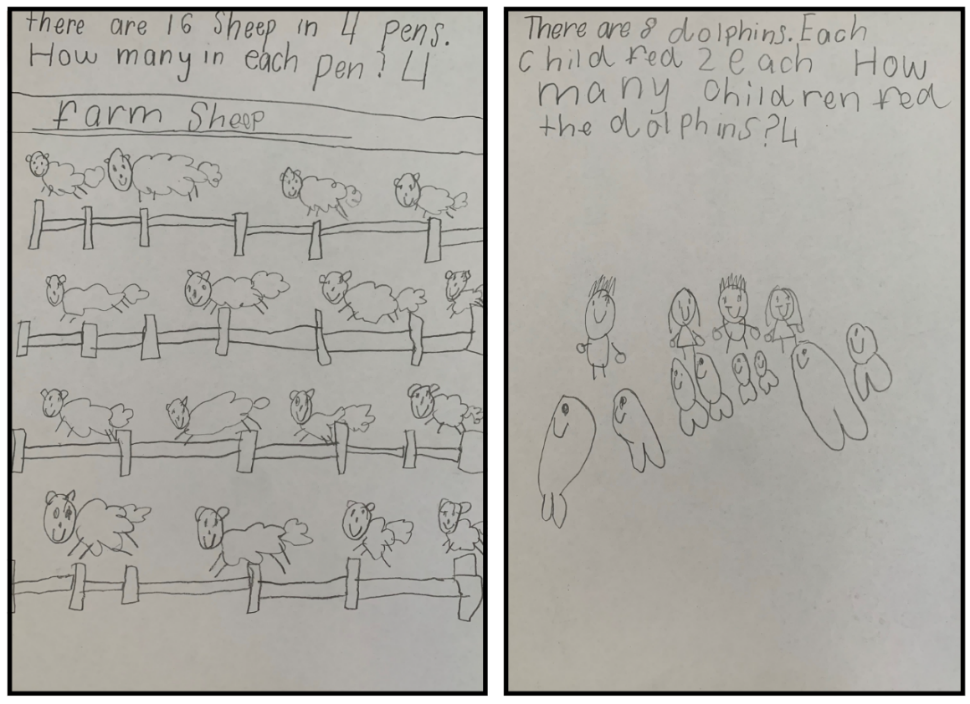 there are 16 Sheep in 4 pens.
How many in each pen? 4
farm Sheep
There are 8 dolphins. Each
Child fed 2 each How
many Children fed
the dolphins? 4